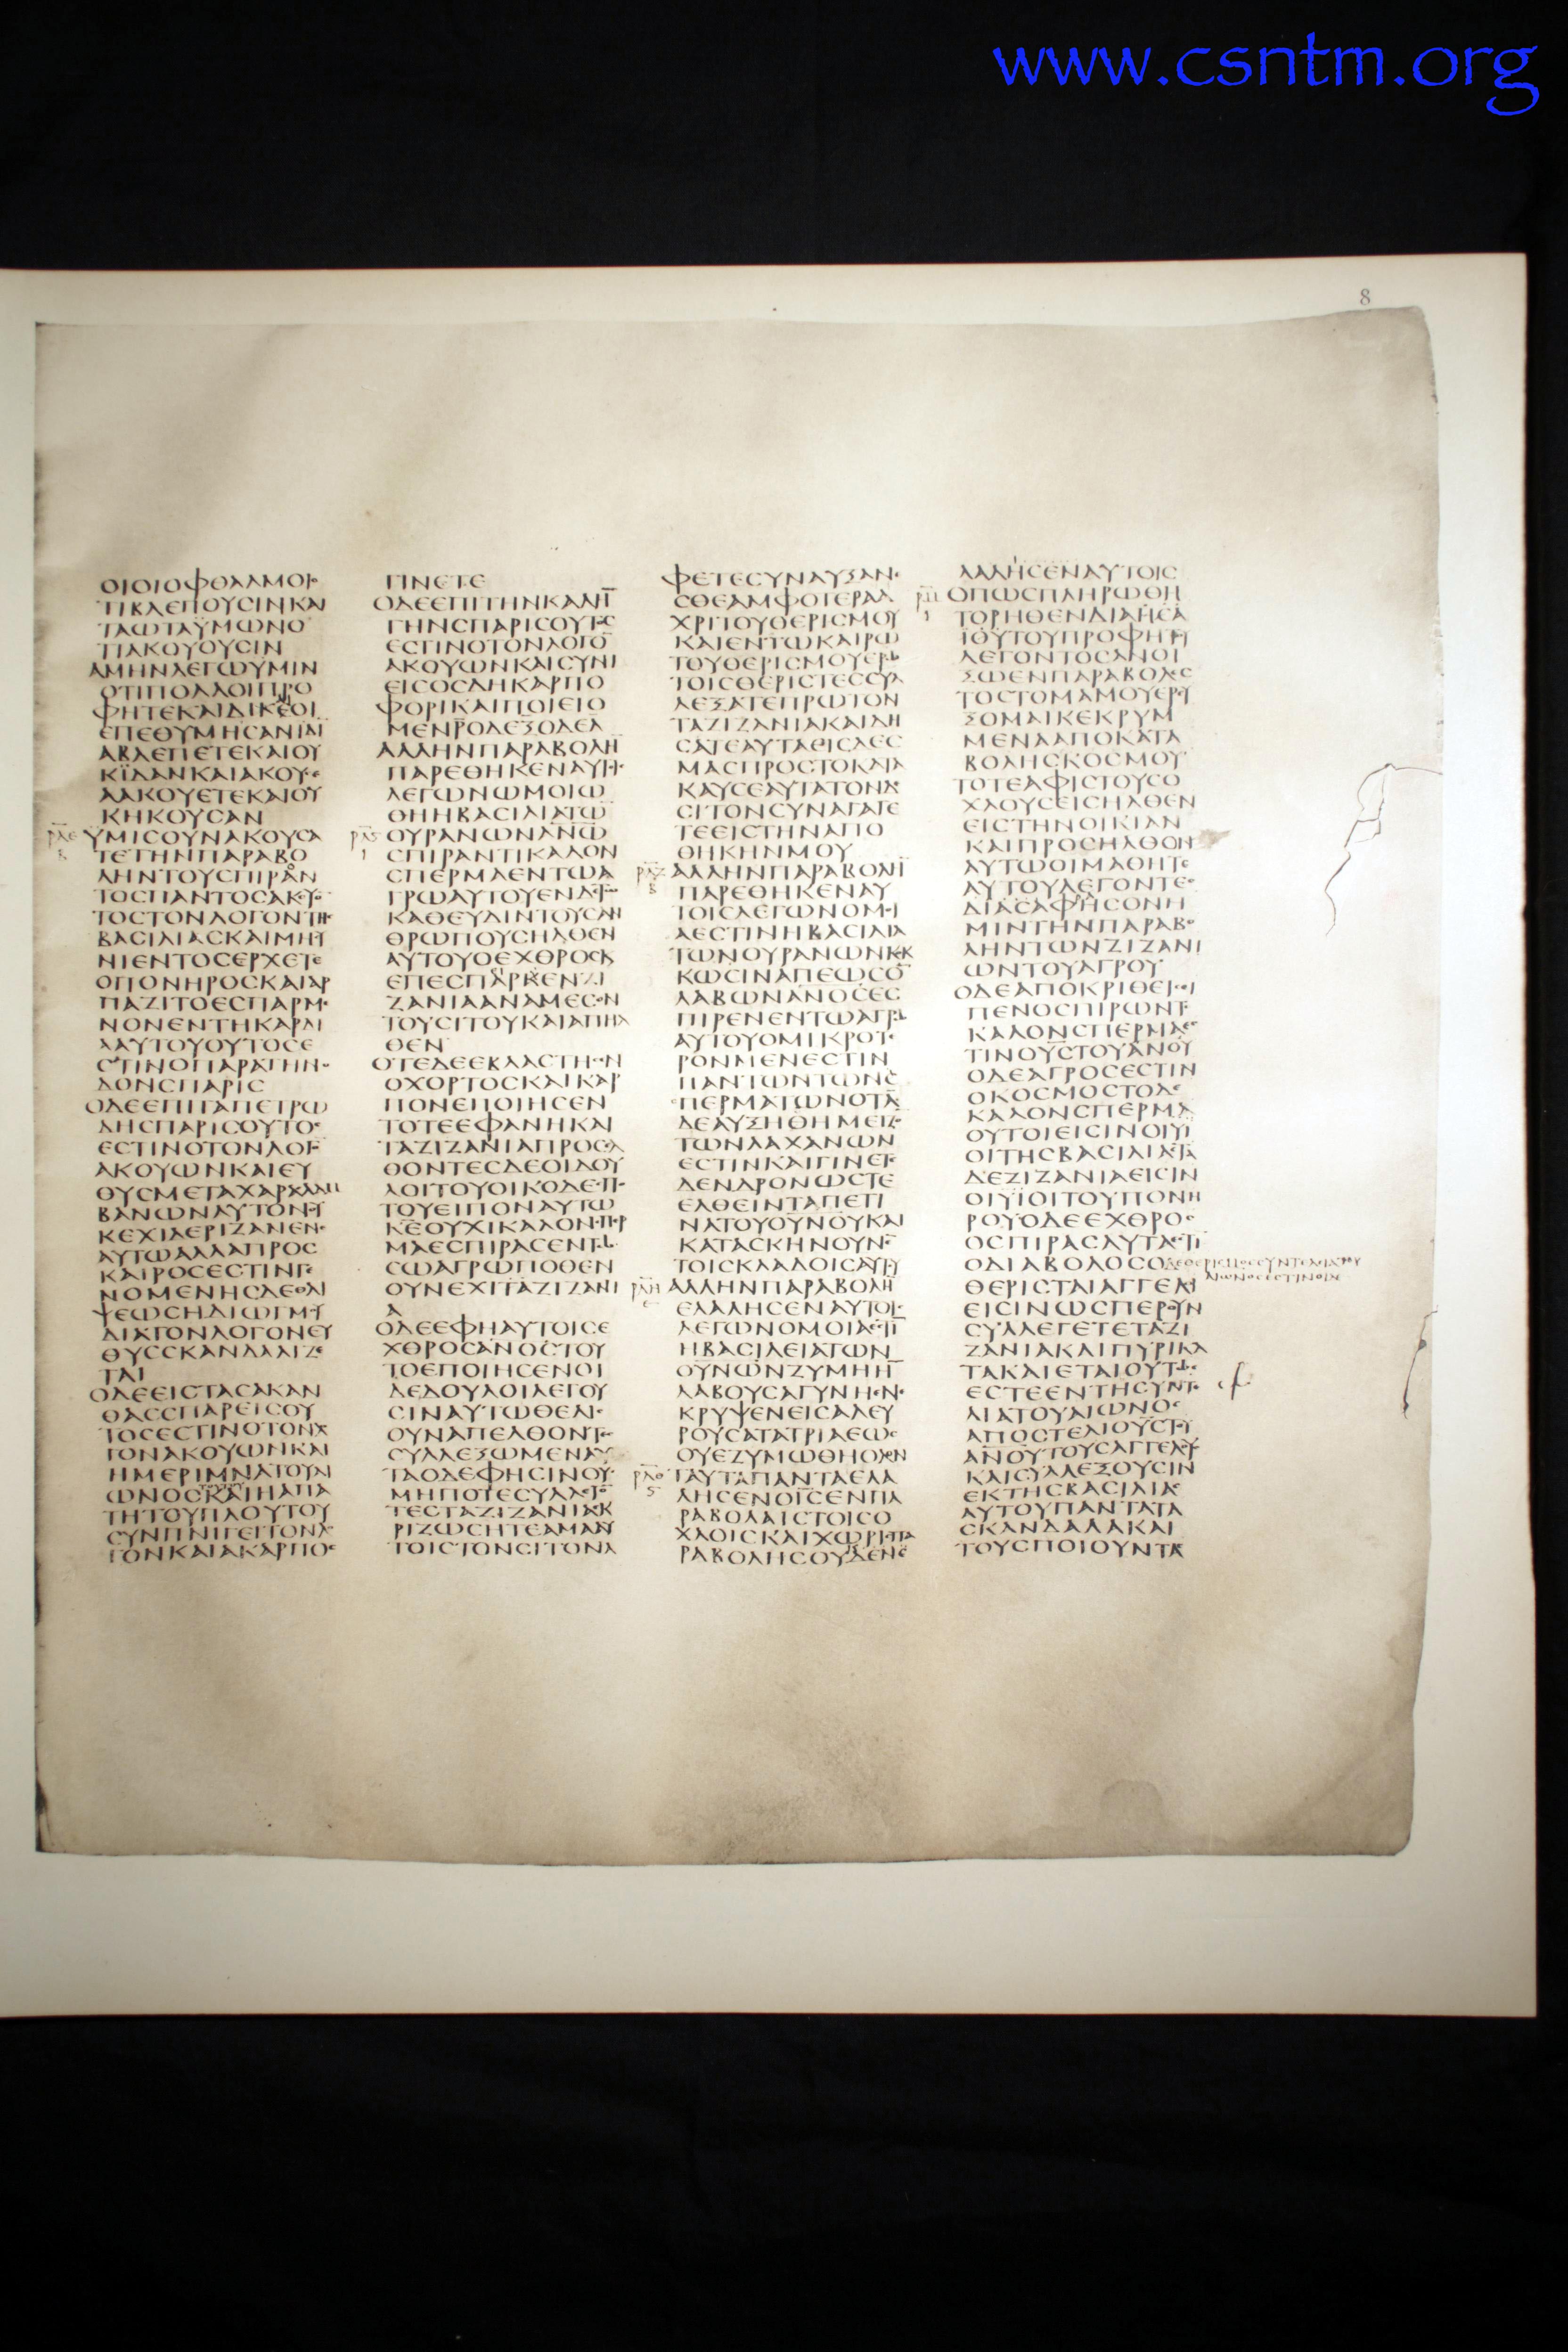 www.csntm.org
8
ΟΙΟΙΟΦΘΑΛΜΟΙΟ
ΤΙΒΛΕΠΟΥΣΙΝΚΑΙ
ΤΑΩΤΑΫΜΩΝΟ
ΤΙΑΚΟΥΟΥΣΙΝ
ΑΜΗΝΛΕΓΩΥΜΙΝ
ΟΤΙΠΟΛΛΟΙΠΡΟ
ΦΗΤΕΚΑΙΔΙΚΕΟΙ
ΕΠΕΘΥΜΗΣΑΝΙΔΙ
ΑΒΛΕΠΕΤΕΚΑΙΟΥ
ΚΪΔΑΝΚΑΙΑΚΟΥΣΕ
ΑΑΚΟΥΕΤΕΚΑΙΟΥ
ΚΗΚΟΥΣΑΝ
ΡΛΕ ΥΜΙΣΟΥΝΑΚΟΥΣΑ
ΤΕΤΗΝΠΑΡΑΒΟ
ΛΗΝΤΟΥΣΠΙΡΑΝ
ΤΟΣΠΑΝΤΟΣΑΚΟΥΟ
ΤΟΣΤΟΝΛΟΓΟΝΤΗΣ
ΒΑΣΙΛΙΑΣΚΑΙΜΗΣΥ
ΝΙΕΝΤΟΣΕΡΧΕΤΕ
ΟΠΟΝΗΡΟΣΚΑΙΑΡ
ΠΑΖΙΤΟΕΣΠΑΡΜΕ
ΝΟΝΕΝΤΗΚΑΡΔΙ
ΑΑΥΤΟΥΟΥΤΟΣΕ
ΣΤΙΝΟΠΑΡΑΤΗΝΟ
ΔΟΝΣΠΑΡΙΣ
ΟΔΕΕΠΙΤΑΠΕΤΡΩ
ΔΗΣΠΑΡΙΣΟΥΤΟΣ
ΕΣΤΙΝΟΤΟΝΛΟΓΟ
ΑΚΟΥΩΝΚΑΙΕΥ
ΘΥΣΜΕΤΑΧΑΡΑΣΛΑΜ
ΒΑΝΩΝΑΥΤΟΝΟΥ
ΚΕΧΙΔΕΡΙΖΑΝΕΝΕ
ΑΥΤΩΑΛΛΑΠΡΟΣ
ΚΑΙΡΟΣΕΣΤΙΝΓΕ
ΝΟΜΕΝΗΣΔΕΘΛΙ
ΨΕΩΣΗΔΙΩΓΜΟΥ
ΔΙΑΤΟΝΛΟΓΟΝΕΥ
ΘΥΣΣΚΑΝΔΑΛΙΖΕ
ΤΑΙ
ΟΔΕΕΙΣΤΑΣΑΚΑΝ
ΘΑΣΣΠΑΡΕΙΣΟΥ
ΤΟΣΕΣΤΙΝΟΤΟΝΛΟ
ΓΟΝΑΚΟΥΩΝΚΑΙ
ΗΜΕΡΙΜΝΑΤΟΥΑΙ
ΩΝΟΣΚΑΙΗΑΠΑ
ΤΗΤΟΥΠΛΟΥΤΟΥ
ΣΥΝΠΝΙΓΕΙΤΟΝΛΟ
ΓΟΝΚΑΙΑΚΑΡΠΟΣ
ΓΙΝΕΤΕ
ΟΔΕΕΠΙΤΗΝΚΑΛΗΝ
ΓΗΝΣΠΑΡΙΣΟΥΤΟΣ
ΕΣΤΙΝΟΤΟΝΛΟΓΟ
ΑΚΟΥΩΝΚΑΙΣΥΝΙ
ΕΙΣΟΣΔΗΚΑΡΠΟ
ΦΟΡΙΚΑΙΠΟΙΕΙΟ
ΜΕΝΡΟΔΕΞΟΔΕΛ
ΑΛΛΗΝΠΑΡΑΒΟΛΗ
ΠΑΡΕΘΗΚΕΝΑΥΤΟΙΣ
ΛΕΓΩΝΩΜΟΙΩ
ΘΗΗΒΑΣΙΛΙΑΤΩ
ΡΛϚ ΟΥΡΑΝΩΝΑΝΩ
ΣΠΙΡΑΝΤΙΚΑΛΟΝ
ΣΠΕΡΜΑΕΝΤΩΑ
ΓΡΩΑΥΤΟΥΕΝΔΕΤΩ
ΚΑΘΕΥΔΙΝΤΟΥΣΑΝ
ΘΡΩΠΟΥΣΗΛΘΕΝ
ΑΥΤΟΥΟΕΧΘΡΟΣΚ
ΕΠΕΣΠΑΡΚΕΝΖΙ
ΖΑΝΙΑΑΝΑΜΕΣΟΝ
ΤΟΥΣΙΤΟΥΚΑΙΑΠΗΛ
ΘΕΝ
ΟΤΕΔΕΕΒΛΑΣΤΗΣΕΝ
ΟΧΟΡΤΟΣΚΑΙΚΑΡ
ΠΟΝΕΠΟΙΗΣΕΝ
ΤΟΤΕΕΦΑΝΗΚΑΙ
ΤΑΖΙΖΑΝΙΑΠΡΟΣΕΛ
ΘΟΝΤΕΣΔΕΟΙΔΟΥ
ΛΟΙΤΟΥΟΙΚΟΔΕΣΠΟ
ΤΟΥΕΙΠΟΝΑΥΤΩ
ΚΕΟΥΧΙΚΑΛΟΝΣΠΕΡ
ΜΑΕΣΠΙΡΑΣΕΝΤΩ
ΣΩΑΓΡΩΠΟΘΕΝ
ΟΥΝΕΧΙΤΑΖΙΖΑΝΙ
Α
ΟΔΕΕΦΗΑΥΤΟΙΣΕ
ΧΘΡΟΣΑΝΟΣΤΟΥ
ΤΟΕΠΟΙΗΣΕΝΟΙ
ΔΕΔΟΥΛΟΙΛΕΓΟΥ
ΣΙΝΑΥΤΩΘΕΛΙΣ
ΟΥΝΑΠΕΛΘΟΝΤΕΣ
ΣΥΛΛΕΞΩΜΕΝΑΥ
ΤΑΟΔΕΦΗΣΙΝΟΥ
ΜΗΠΟΤΕΣΥΛΛΕΓΟ
ΤΕΣΤΑΖΙΖΑΝΙΑΕΚ
ΡΙΖΩΣΗΤΕΑΜΑΑΥ
ΤΟΙΣΤΟΝΣΙΤΟΝΑ
ΦΕΤΕΣΥΝΑΥΞΑΝΕ
ΣΘΕΑΜΦΟΤΕΡΑΑ
ΧΡΙΤΟΥΘΕΡΙΣΜΟΥ
ΚΑΙΕΝΤΩΚΑΙΡΩ
ΤΟΥΘΕΡΙΣΜΟΥΕΡΩ
ΤΟΙΣΘΕΡΙΣΤΕΣΣΥΛ
ΛΕΞΑΤΕΠΡΩΤΟΝ
ΤΑΖΙΖΑΝΙΑΚΑΙΔΗ
ΣΑΤΕΑΥΤΑΙΣΔΕΣ
ΜΑΣΠΡΟΣΤΟΚΑΤΑ
ΚΑΥΣΕΑΥΤΑΤΟΝΔΕ
ΣΙΤΟΝΣΥΝΑΓΑΓΕ
ΤΕΕΙΣΤΗΝΑΠΟ
ΘΗΚΗΝΜΟΥ
ΡΛΖ ΑΛΛΗΝΠΑΡΑΒΟΛΗ
ΠΑΡΕΘΗΚΕΝΑΥ
ΤΟΙΣΛΕΓΩΝΟΜΟΙ
ΑΕΣΤΙΝΗΒΑΣΙΛΙΑ
ΤΩΝΟΥΡΑΝΩΝΚΟΚ
ΚΩΣΙΝΑΠΕΩΣΟ
ΛΑΒΩΝΑΝΟΣΕΣ
ΠΙΡΕΝΕΝΤΩΑΓΡΩ
ΑΥΤΟΥΟΜΙΚΡΟΤΕ
ΡΟΝΜΕΝΕΣΤΙΝ
ΠΑΝΤΩΝΤΩΝΣ
ΠΕΡΜΑΤΩΝΟΤΑ
ΔΕΑΥΞΗΘΗΜΕΙΖΟ
ΤΩΝΛΑΧΑΝΩΝ
ΕΣΤΙΝΚΑΙΓΙΝΕΤΕ
ΔΕΝΔΡΟΝΩΣΤΕ
ΕΛΘΕΙΝΤΑΠΕΤΙ
ΝΑΤΟΥΟΥΝΟΥΚΑΙ
ΚΑΤΑΣΚΗΝΟΥΝΕ
ΤΟΙΣΚΛΑΔΟΙΣΑΥΤΟΥ
ΡΛΗ ΑΛΛΗΝΠΑΡΑΒΟΛΗ
ΕΛΑΛΗΣΕΝΑΥΤΟΙΣ
ΛΕΓΩΝΟΜΟΙΑΕΣΤΙ
ΗΒΑΣΙΛΕΙΑΤΩΝ
ΟΥΝΩΝΖΥΜΗΗ
ΛΑΒΟΥΣΑΓΥΝΗΕΝΕ
ΚΡΥΨΕΝΕΙΣΑΛΕΥ
ΡΟΥΣΑΤΑΤΡΙΑΕΩΣ
ΟΥΕΖΥΜΩΘΗΟΛΟΝ
ΡΛΘ ΤΑΥΤΑΠΑΝΤΑΕΛΑ
ΛΗΣΕΝΟΙΣΕΝΠΑ
ΡΑΒΟΛΑΙΣΤΟΙΣΟ
ΧΛΟΙΣΚΑΙΧΩΡΙΣΠΑ
ΡΑΒΟΛΗΣΟΥΔΕΝΕ
ΛΑΛΗΣΕΝΑΥΤΟΙΣ
ΡΜ ΟΠΩΣΠΛΗΡΩΘΗ
ΤΟΡΗΘΕΝΔΙΑΗΣΑ
ΙΟΥΤΟΥΠΡΟΦΗΤΟΥ
ΛΕΓΟΝΤΟΣΑΝΟΙ
ΞΩΕΝΠΑΡΑΒΟΛΑΙΣ
ΤΟΣΤΟΜΑΜΟΥΕΡΕΥ
ΞΟΜΑΙΚΕΚΡΥΜ
ΜΕΝΑΑΠΟΚΑΤΑ
ΒΟΛΗΣΚΟΣΜΟΥ
ΤΟΤΕΑΦΙΣΤΟΥΣΟ
ΧΛΟΥΣΕΙΣΗΛΘΕΝ
ΕΙΣΤΗΝΟΙΚΙΑΝ
ΚΑΙΠΡΟΣΗΛΘΟΝ
ΑΥΤΩΟΙΜΑΘΗΤΕ
ΑΥΤΟΥΛΕΓΟΝΤΕΣ
ΔΙΑΣΑΦΗΣΟΝΗ
ΜΙΝΤΗΝΠΑΡΑΒΟ
ΛΗΝΤΩΝΖΙΖΑΝΙ
ΩΝΤΟΥΑΓΡΟΥ
ΟΔΕΑΠΟΚΡΙΘΕΙΣΕΙ
ΠΕΝΟΣΠΙΡΩΝΤΟ
ΚΑΛΟΝΣΠΕΡΜΑΕΣ
ΤΙΝΟΥΣΤΟΥΑΝΟΥ
ΟΔΕΑΓΡΟΣΕΣΤΙΝ
ΟΚΟΣΜΟΣΤΟΔΕ
ΚΑΛΟΝΣΠΕΡΜΑ
ΟΥΤΟΙΕΙΣΙΝΟΙΥΙ
ΟΙΤΗΣΒΑΣΙΛΙΑΣΤΑ
ΔΕΖΙΖΑΝΙΑΕΙΣΙΝ
ΟΙΥΪΟΙΤΟΥΠΟΝΗ
ΡΟΥΟΔΕΕΧΘΡΟΣ
ΟΣΠΙΡΑΣΑΥΤΑΕΣΤΙ
ΟΔΙΑΒΟΛΟΣΟΙΔΕ
ΘΕΡΙΣΤΑΙΑΓΓΕΛΟΙ
ΕΙΣΙΝΩΣΠΕΡΟΥΝ
ΣΥΛΛΕΓΕΤΕΤΑΖΙ
ΖΑΝΙΑΚΑΙΠΥΡΙΚΑ
ΤΑΚΑΙΕΤΑΙΟΥΤΩΣ
ΕΣΤΕΕΝΤΗΣΥΝΤΕ
ΛΙΑΤΟΥΑΙΩΝΟΣ
ΑΠΟΣΤΕΛΙΟΥΣΤΟΥ
ΑΝΟΥΤΟΥΣΑΓΓΕΛΟΥΣ
ΚΑΙΣΥΛΛΕΞΟΥΣΙΝ
ΕΚΤΗΣΒΑΣΙΛΙΑΣ
ΑΥΤΟΥΠΑΝΤΑΤΑ
ΣΚΑΝΔΑΛΑΚΑΙ
ΤΟΥΣΠΟΙΟΥΝΤΑΣ